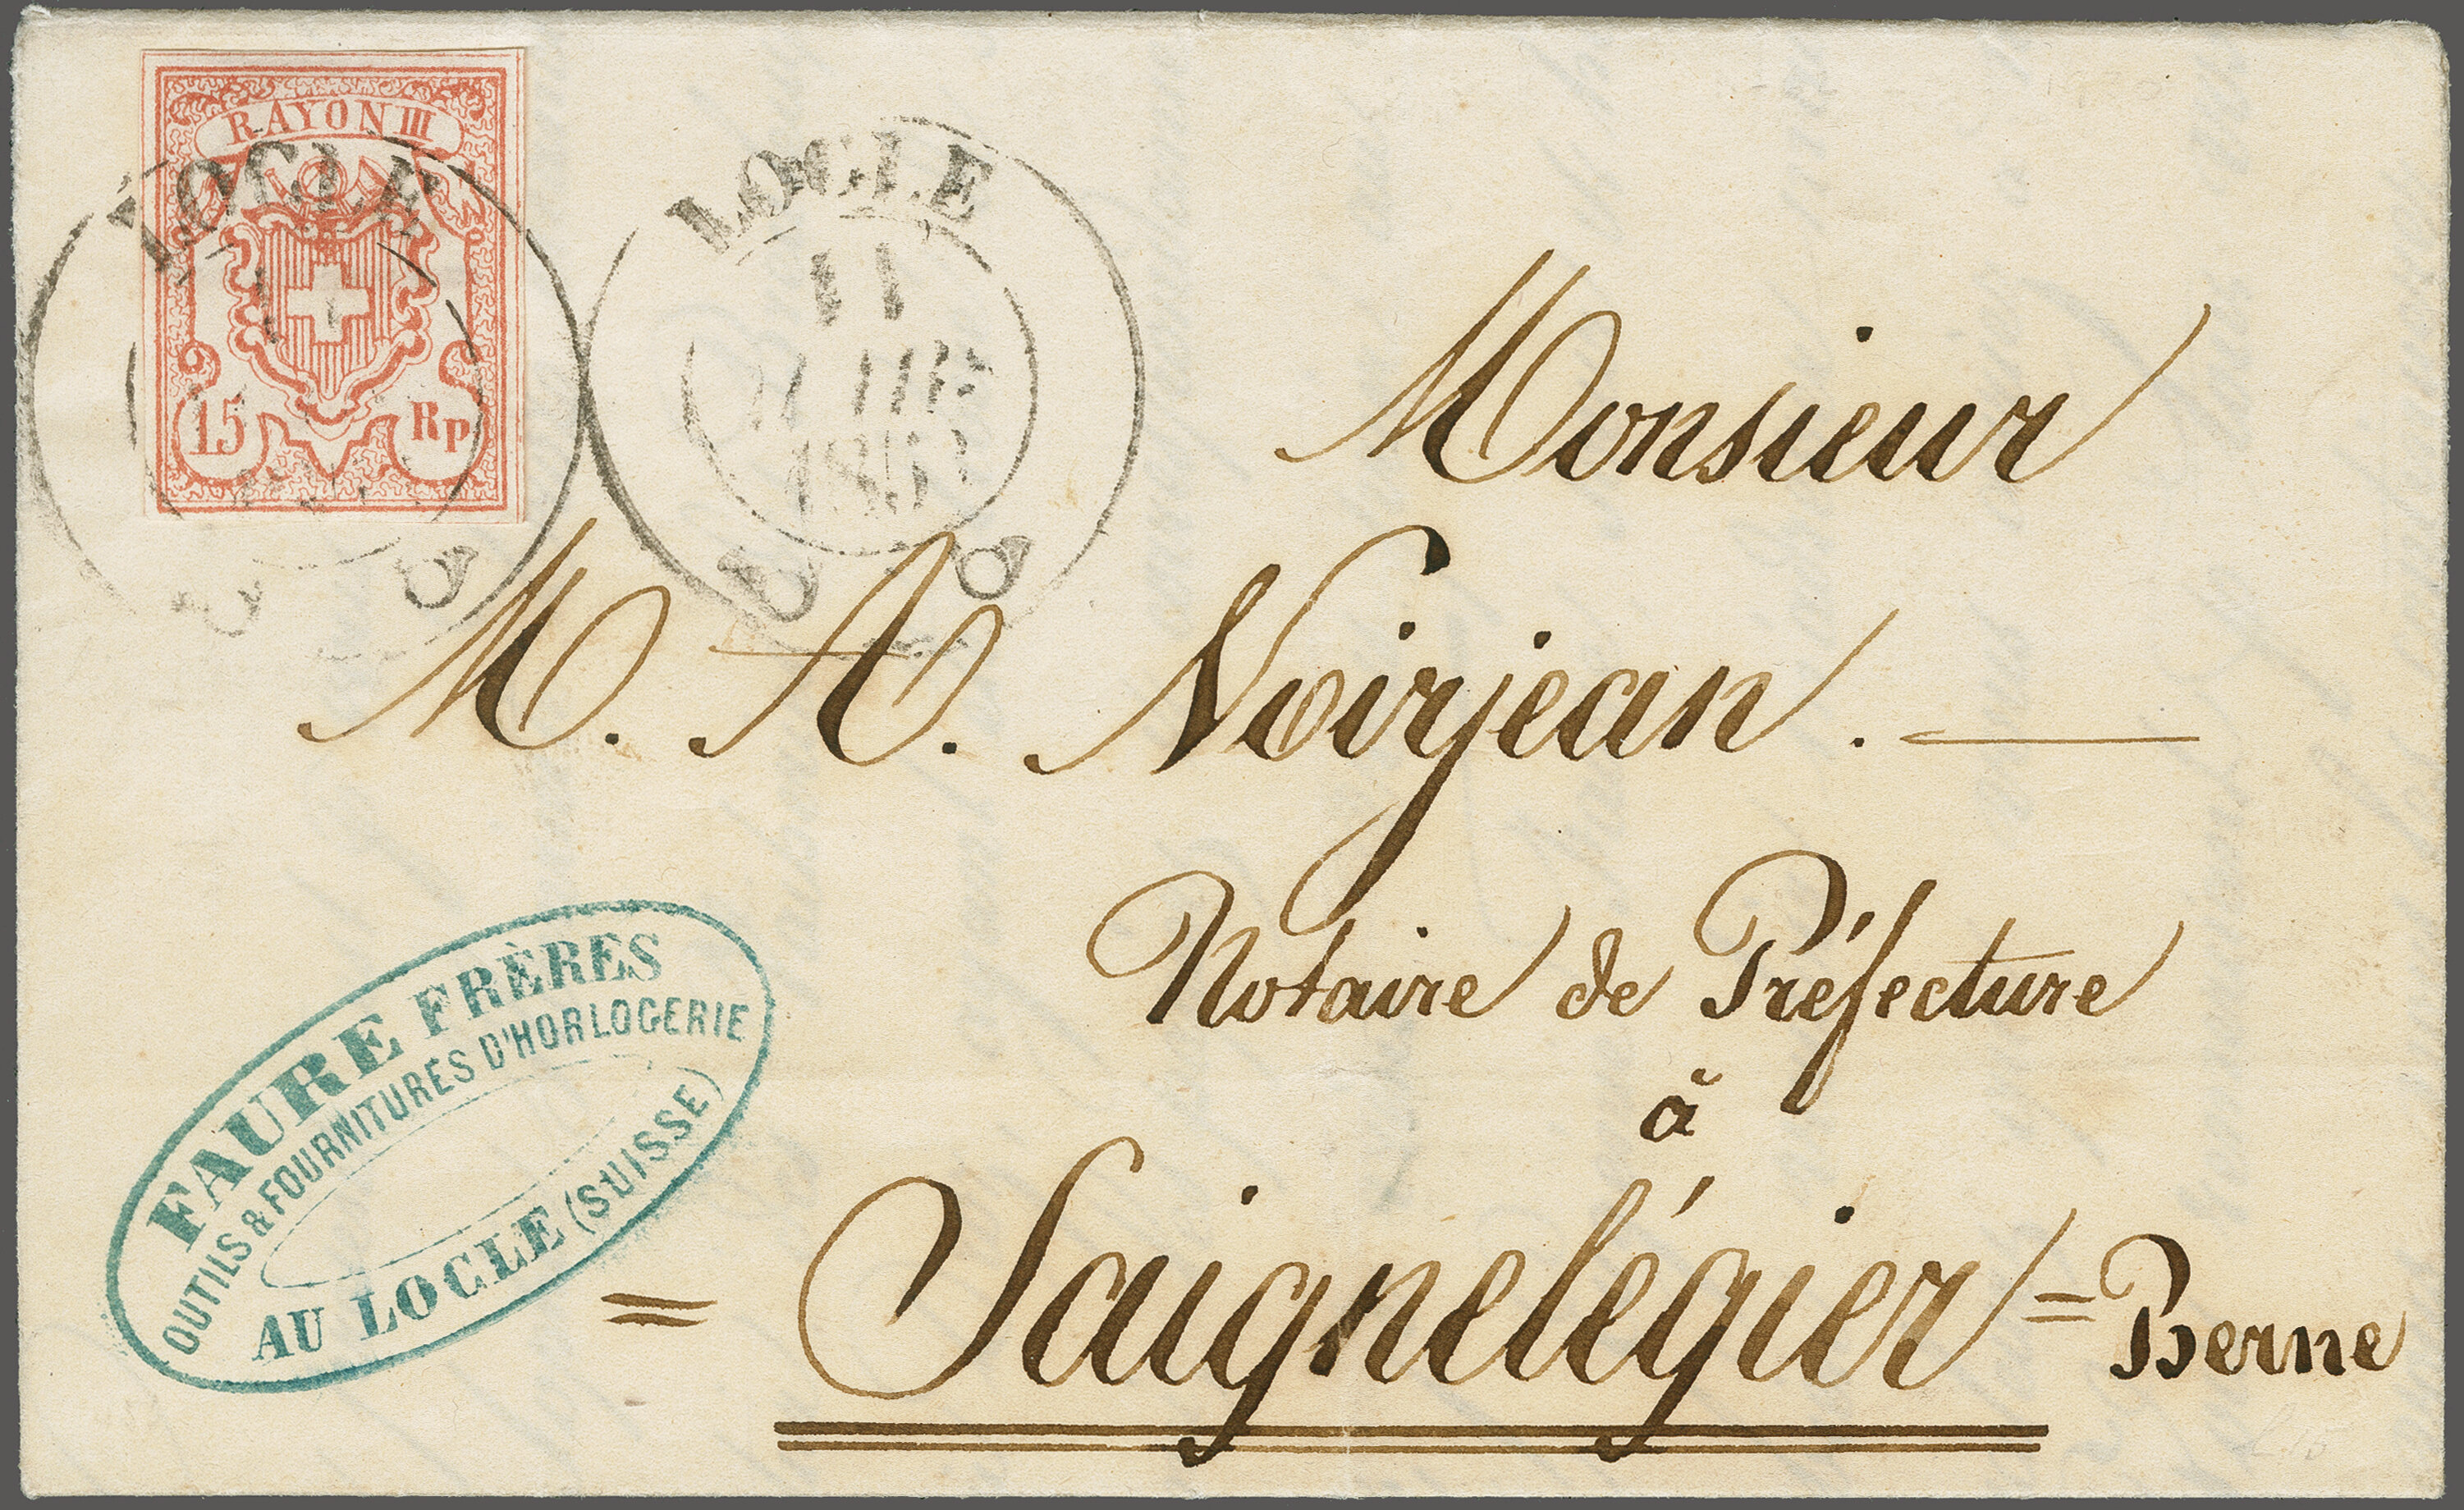 RAYON III
15 Rp
LOCLE
LOCLE
11
Monsieur
M. A. Noirjean.
Notaire de Préfecture
à
= Saignelégier = Berne
FAURE FRÈRES
OUTILS & FOURNITURES D'HORLOGERIE
AU LOCLE (SUISSE)